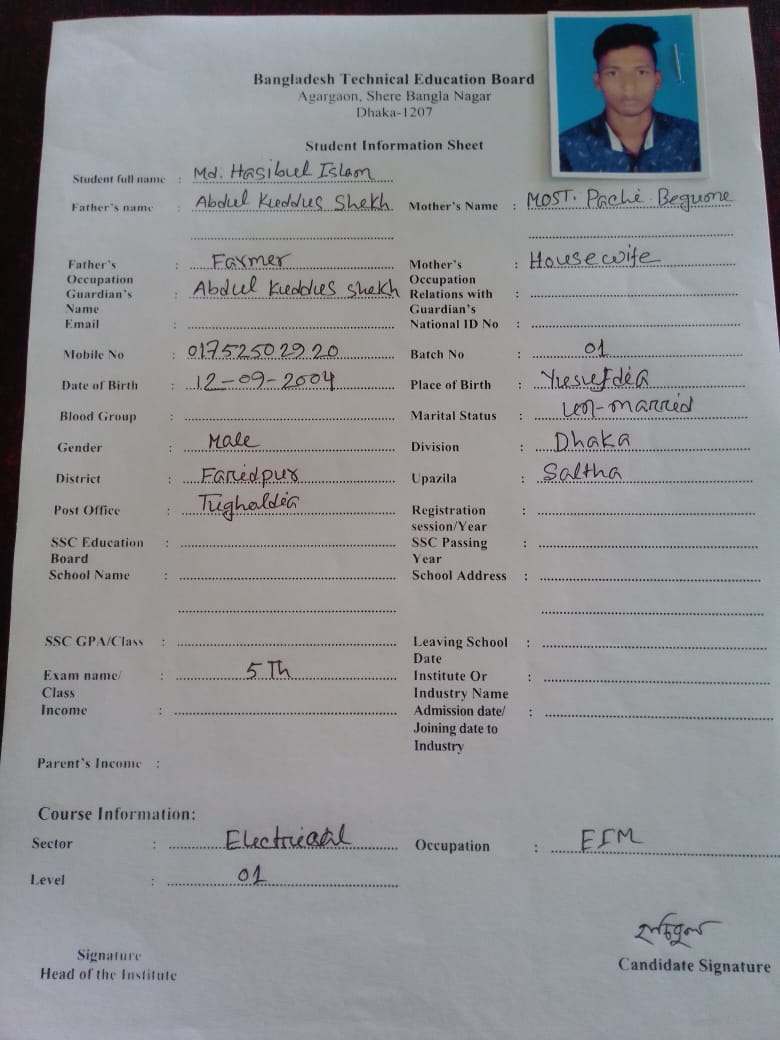 Bangladesh Technical Education Board
Agargaon, Shere Bangla Nagar
Dhaka-1207
Student Information Sheet
Student full name : Md. Hasibul Islam
Father's name : Abdul Kuddus Shekh Mother's Name : MOST. Pache Begume
Father's Occupation : Farmer Mother's Occupation : Housewife
Guardian's Name : Abdul Kuddus Shekh Relations with Guardian's :
Email : National ID No :
Mobile No : 01752502920 Batch No : 01
Date of Birth : 12-09-2004 Place of Birth : Yusufdia
Blood Group : Marital Status : un-married
Gender : Male Division : Dhaka
District : Faridpur Upazila : Saltha
Post Office : Tughaldia Registration session/Year :
SSC Education Board : SSC Passing Year :
School Name : School Address :
SSC GPA/Class : Leaving School Date :
Exam name/ Class : 5 Th Institute Or Industry Name :
Income : Admission date/ Joining date to Industry :
Parent's Income :
Course Information:
Sector : Electrical Occupation : EIM
Level : 01
হাসিবুল
Signature
Head of the Institute
Candidate Signature